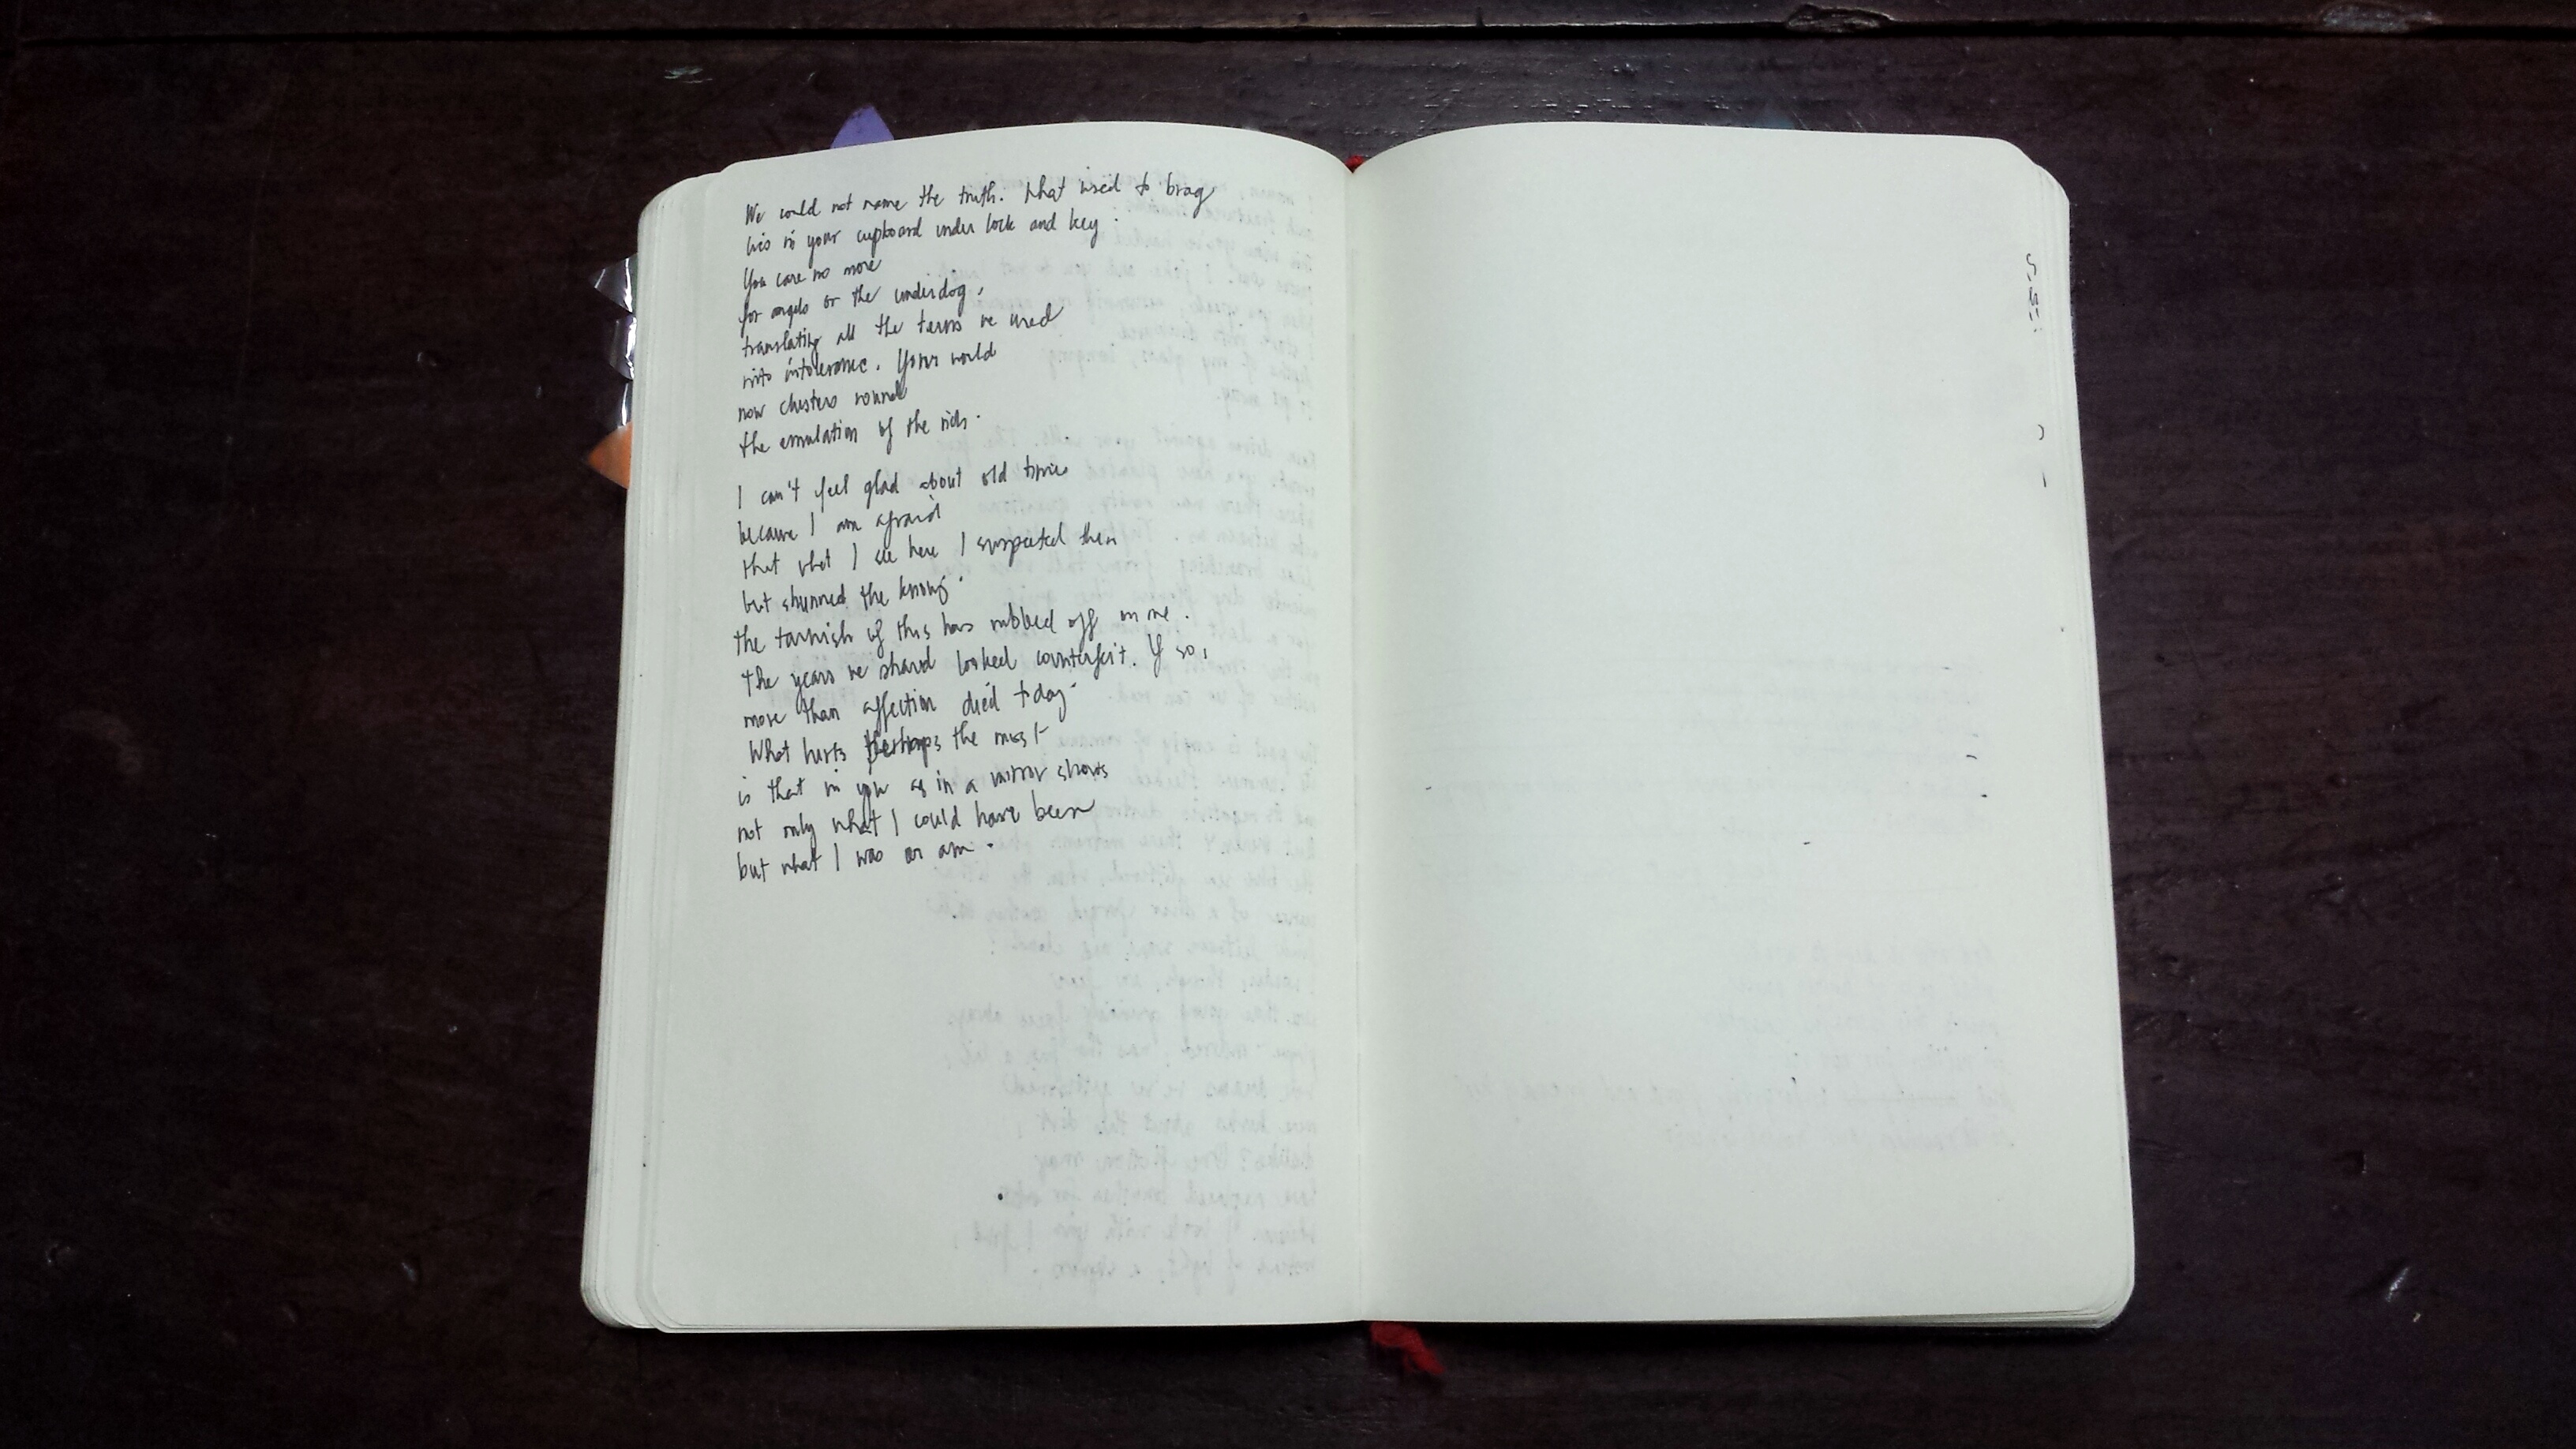 We could not name the truth. What used to brag
lies in your cupboard under lock and key.
You care no more
for angels or the underdog,
translating all the terms we used
into intolerance. Your world
now clusters round
the emulation of the rich.
I can't feel glad about old times
because I am afraid
that what I see here I suspected then
but shunned the knowing.
the tarnish of this has rubbed off on me.
the years we shared looked counterfeit. If so,
more than affection died today.
What hurts perhaps the most
is that in you as in a mirror shows
not only what I could have been
but what I was or am.